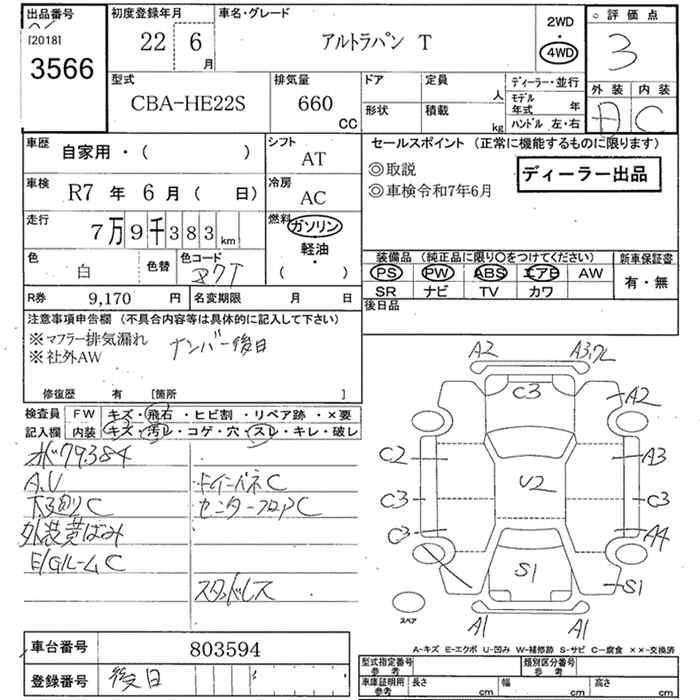 出品番号 初度登録年月 車名・グレード 2WD ○ 評価点
[2018] 22 6 月 アルトラパン T 4WD 3
3566
型式 排気量 ドア 定員 人 ディーラー・並行 外装 内装
CBA-HE22S 660 CC 形状 積載 kg モデル年式 年 ハンドル 左・右 D C
車歴 自家用・( ) シフト AT セールスポイント (正常に機能するものに限ります)
◎取説 ディーラー出品
車検 R7 年 6 月 ( 日) 冷房 AC ◎車検令和7年6月
走行 7万9千383km 燃料 ガソリン
軽油・
( )
色 白 色替 色コード Z7T 装備品 (純正品に限り○をつけてください) 新車保証書
PS PW ABS エアB AW 有・無
SR ナビ TV カワ
R券 9,170 円 名変期限 月 日 後日品
注意事項申告欄 (不具合内容等は具体的に記入して下さい)
※マフラー排気漏れ ナンバー後日
※社外AW
修復歴 有 [箇所 ]
検査員 FW キズ・飛石・ヒビ割・リペア跡・×要
記入欄 内装 キズ・汚レ・コゲ・穴・スレ・キレ・破レ
79384
A.U ドインパネC
下廻りC センターフロアC
外装黄ばみ
E/GルームC
スタッドレス
A2 A3,ワレ
C3 A2
C2 A3
U2
C3 C3
C3 A4
S1 S1
スペア A1 A1
A-キズ E-エクボ U-凹み W-補修跡 S-サビ C-腐食 ××-交換済
車台番号 803594
型式指定番号 参考 類別区分番号 参考
登録番号 後日 車庫証明用 参考 長さ cm 幅 cm 高さ cm